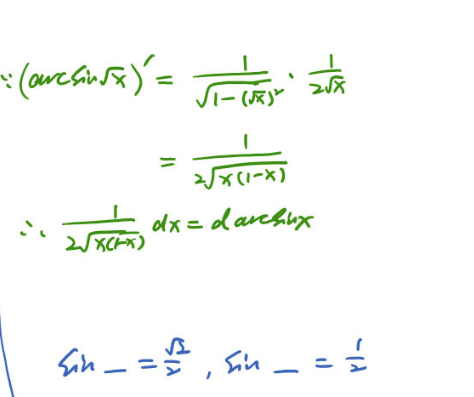 ∵ (arcsin√x)′ = 1/√(1-(√x)²) · 1/(2√x)
= 1/(2√(x(1-x)))
∴ 1/(2√(x(1-x))) dx = d arcsinx
sin _ = √3/2 , sin _ = 1/2